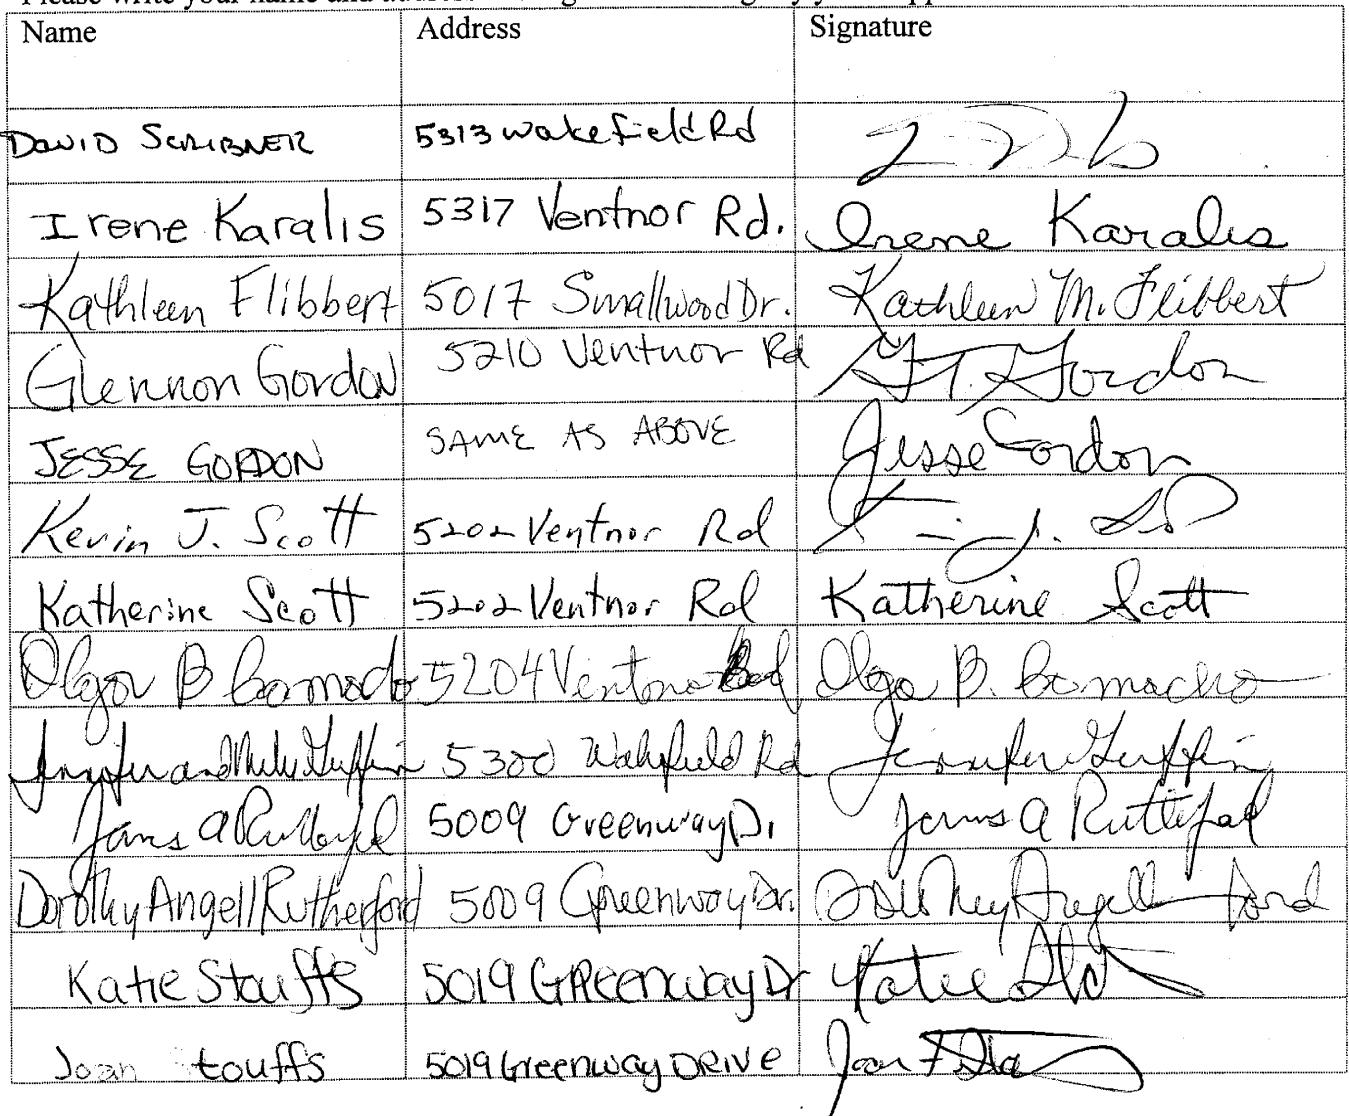 Please write your name and address
Name Address Signature
DAVID SCRIBNER 5313 Wakefield Rd
Irene Karalis 5317 Ventnor Rd. Irene Karalis
Kathleen Flibbert 5017 Smallwood Dr. Kathleen M. Flibbert
Glennon Gordon 5210 Ventnor Rd G.T. Gordon
JESSE GORDON SAME AS ABOVE Jesse Gordon
Kevin J. Scott 5202 Ventnor Rd
Katherine Scott 5202 Ventnor Rd Katherine Scott
Olga B Camacho 5204 Ventnor Rd Olga B. Camacho
Jennifer and Griffin 5300 Wakefield Rd Jennifer Griffin
James A Rutherford 5009 Greenway Dr James A Rutherford
Dorothy Angell Rutherford 5009 Greenway Dr. Dorothy Angell
Katie Stouffs 5019 Greenway Dr Katie
Joan Stouffs 5019 Greenway DRIVE Joan F